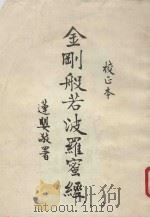 校正本
金剛般若波羅蜜經
敬署